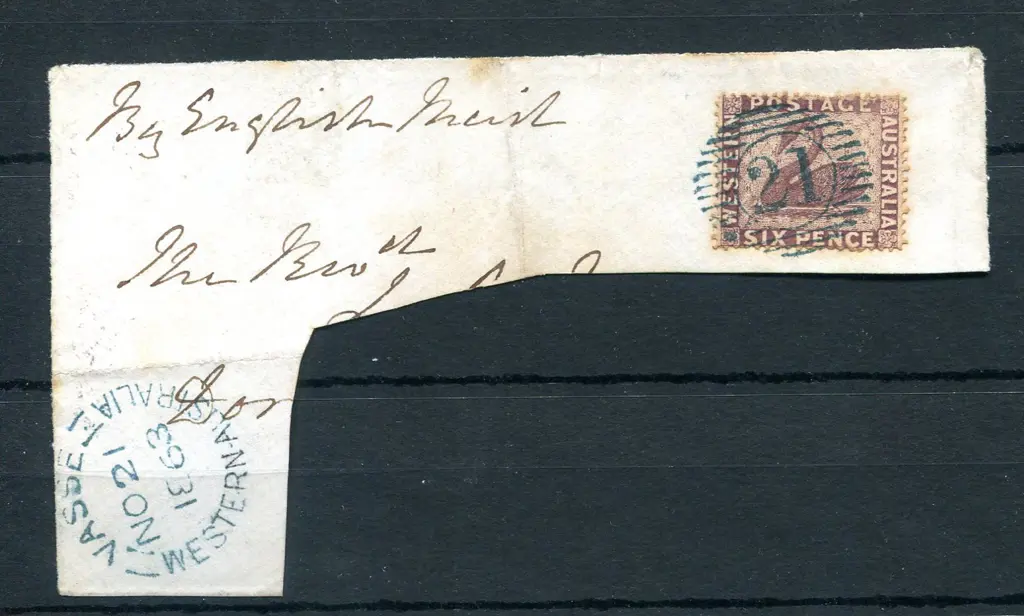 By English Mail
POSTAGE
WESTERN
AUSTRALIA
21
SIX PENCE
The Revd
Lon
VASSE
NO 21
1863
WESTERN AUSTRALIA